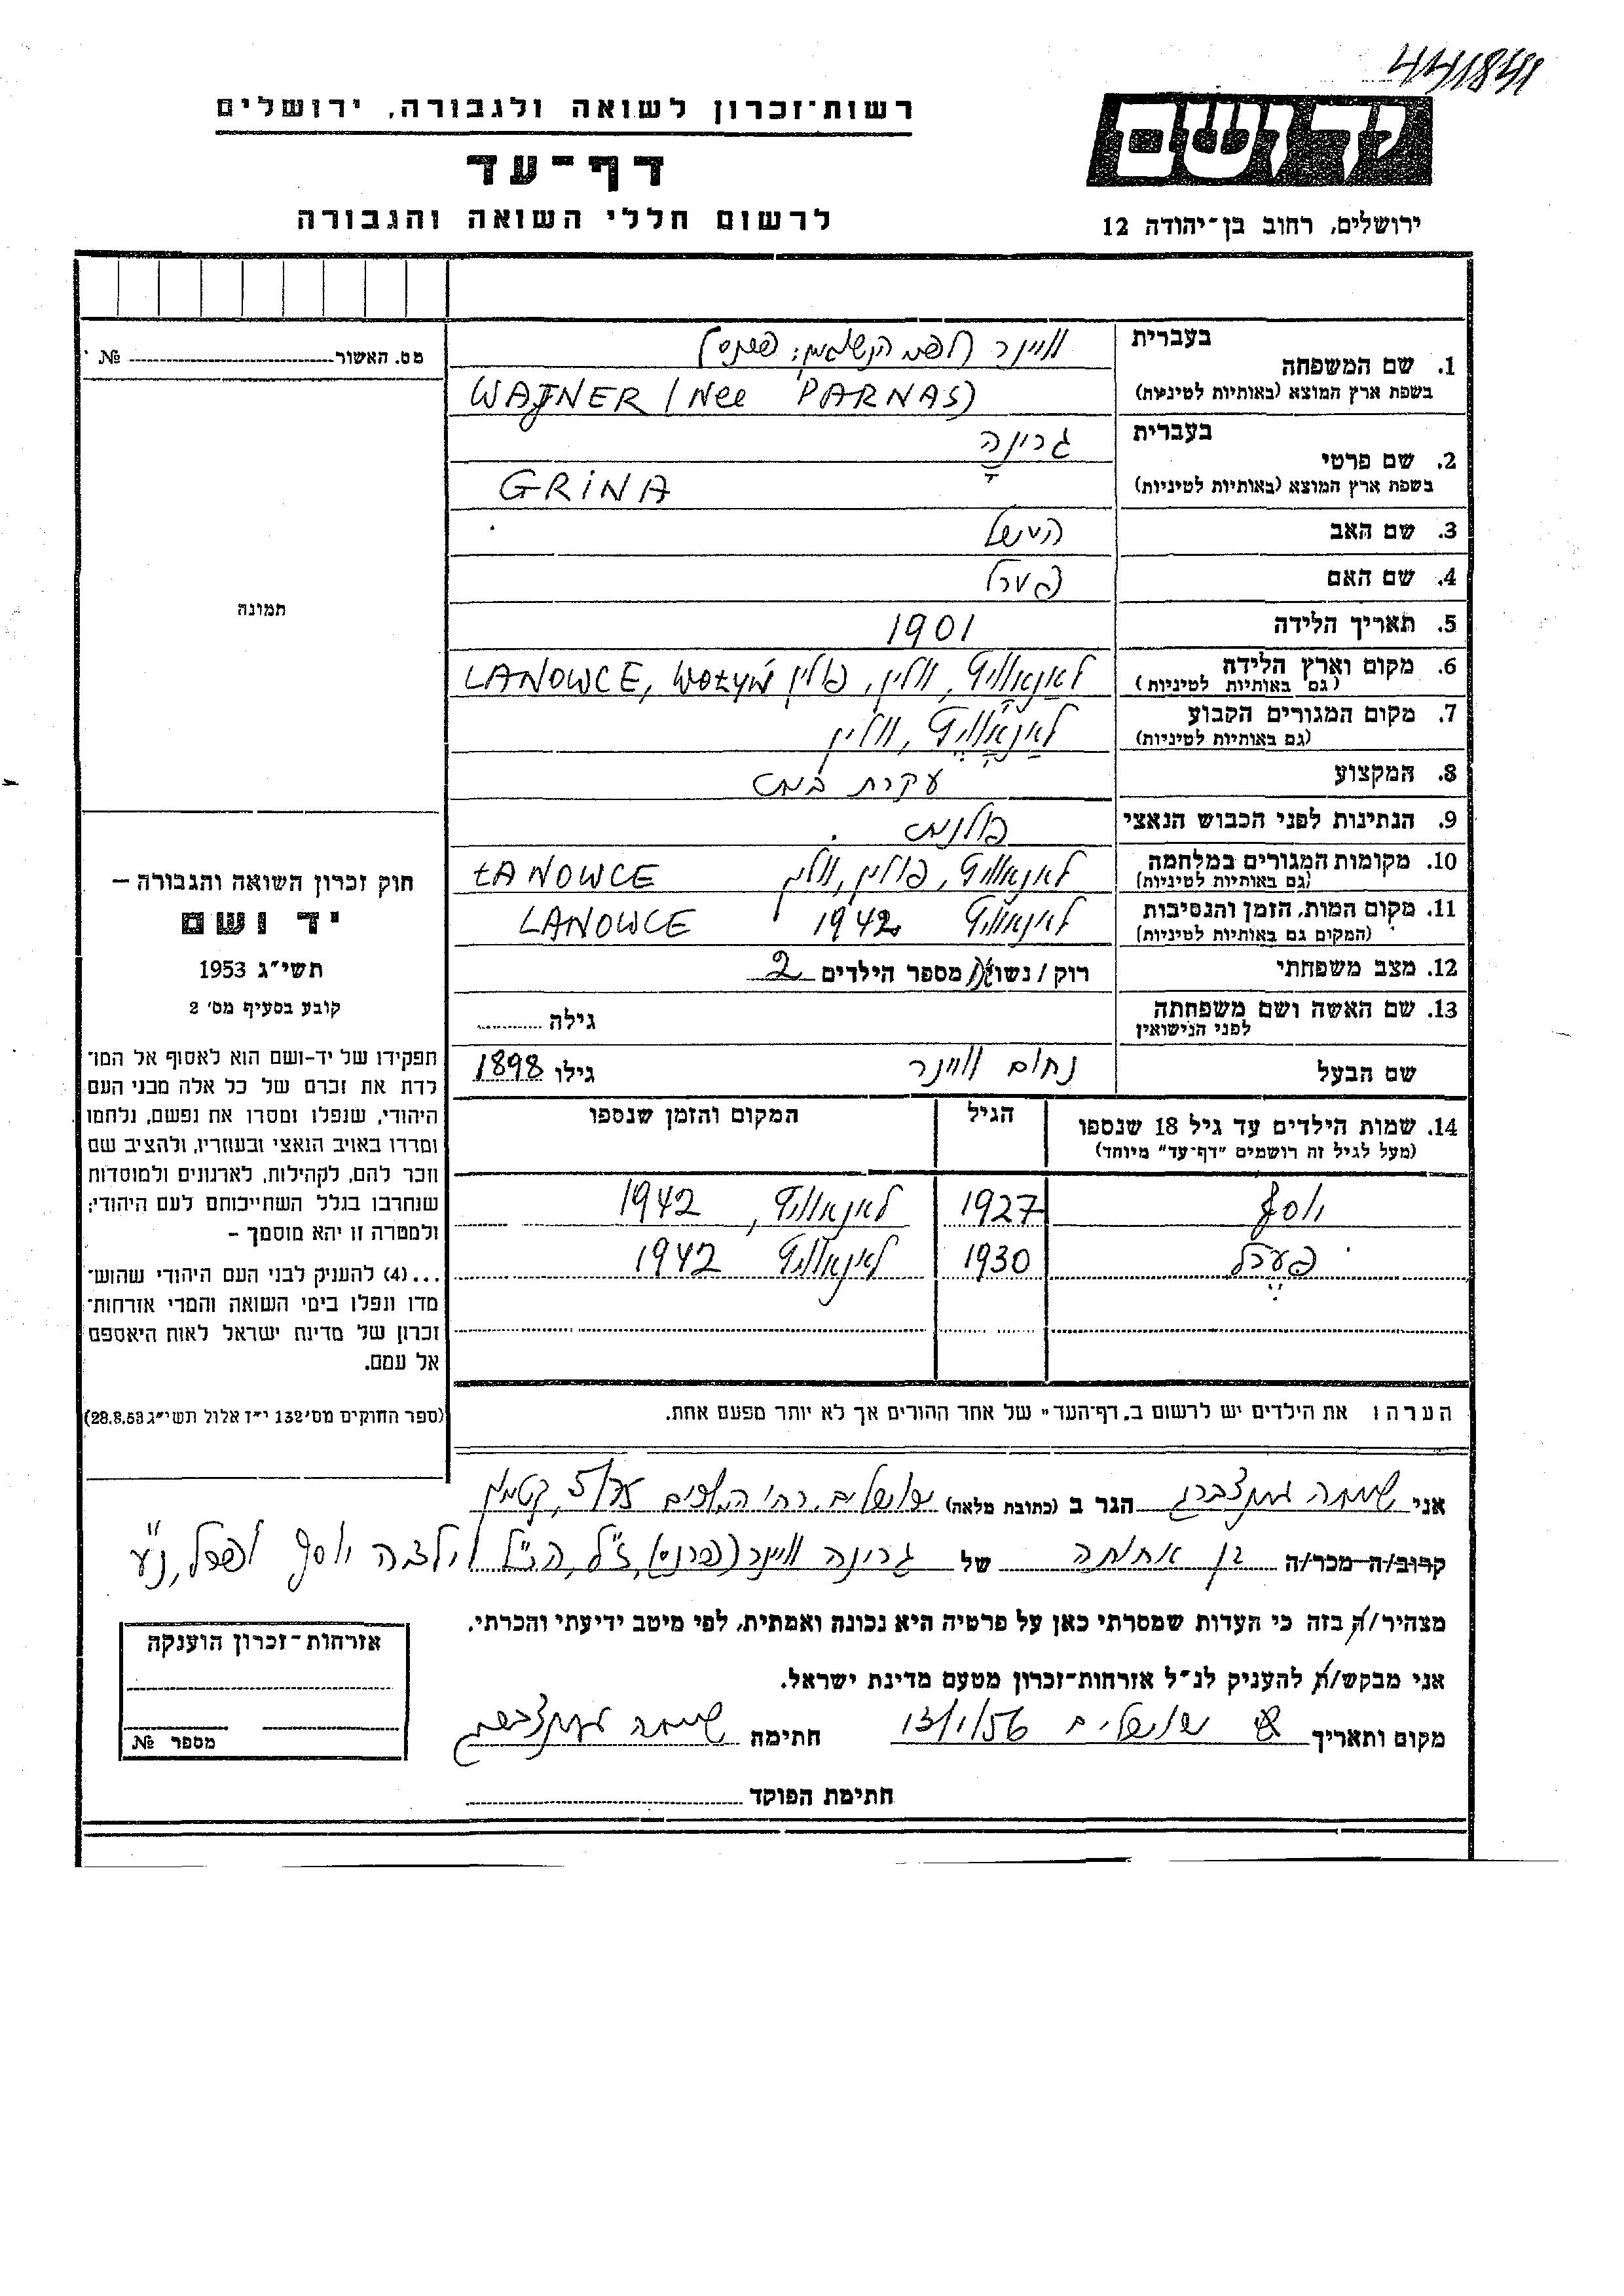 441841
יד ושם
ירושלים, רחוב בן־יהודה 12
רשות־זכרון לשואה ולגבורה, ירושלים
דף־עד
לרשום חללי השואה והגבורה
מס. האשור № 
1. שם המשפחה
בעברית
ווײנר (לפני הנשואין: פרנס)
בשפת ארץ המוצא (באותיות לטיניות)
WAJNER (Nee PARNAS)
2. שם פרטי
בעברית
גרינה
בשפת ארץ המוצא (באותיות לטיניות)
GRINA
3. שם האב
הירש
4. שם האם
פערל
5. תאריך הלידה
1901
6. מקום וארץ הלידה
(גם באותיות לטיניות)
לאנאוויץ, ווולין, פולין LANOWCE, WOŁYŃ
7. מקום המגורים הקבוע
(גם באותיות לטיניות)
לאנאוויץ, ווולין
8. המקצוע
עקרת בית
9. הנתינות לפני הכבוש הנאצי
פולנית
10. מקומות המגורים במלחמה
(גם באותיות לטיניות)
לאנאוויץ, פולין, ווולין ŁANOWCE
11. מקום המות, הזמן והנסיבות
(המקום גם באותיות לטיניות)
לאנאוויץ 1942 LANOWCE
12. מצב משפחתי
רוק / נשוי/אה מספר הילדים 2
13. שם האשה ושם משפחתה
לפני הנישואין
גילה
שם הבעל
נחום ווײנר גילו 1898
14. שמות הילדים עד גיל 18 שנספו
(מעל לגיל זה רושמים "דף־עד" מיוחד)
הגיל
המקום והזמן שנספו
יוסף 1927 לאנאוויץ, 1942
פערל 1930 לאנאוויץ 1942
הערה ו את הילדים יש לרשום ב„דף־העד" של אחד ההורים אך לא יותר מפעם אחת.
תמונה
חוק זכרון השואה והגבורה –
יד ושם
תשי״ג 1953
קובע בסעיף מס׳ 2
תפקידו של יד-ושם הוא לאסוף אל המו־
לדת את זכרם של כל אלה מבני העם
היהודי, שנפלו ומסרו את נפשם, נלחמו
ומרדו באויב הנאצי ובעוזריו, ולהציב שם
וזכר להם, לקהילות, לארגונים ולמוסדות
שנחרבו בגלל השתייכותם לעם היהודי;
ולמטרה זו יהא מוסמך –
...(4) להעניק לבני העם היהודי שהוש־
מדו ונפלו בימי השואה והמרי אזרחות־
זכרון של מדינת ישראל לאות היאספם
אל עמם.
(ספר החוקים מס׳132 י״ז אלול תשי״ג 28.8.53)
אני שמחה הגר ב (כתובת מלאה) ירושלים, רח׳
קרוב/ה מכר/ה בן אחותה של גרינה ווײנר (פרנס) ז״ל, הנ״ל וילדיה יוסף ופערל, נ״ע
מצהיר/ה בזה כי העדות שמסרתי כאן על פרטיה היא נכונה ואמתית, לפי מיטב ידיעתי והכרתי.
אני מבקש/ת להעניק לנ״ל אזרחות־זכרון מטעם מדינת ישראל.
מקום ותאריך ירושלים 13/1/56 חתימה שמחה
חתימת הפוקד
אזרחות־זכרון הוענקה
מספר №